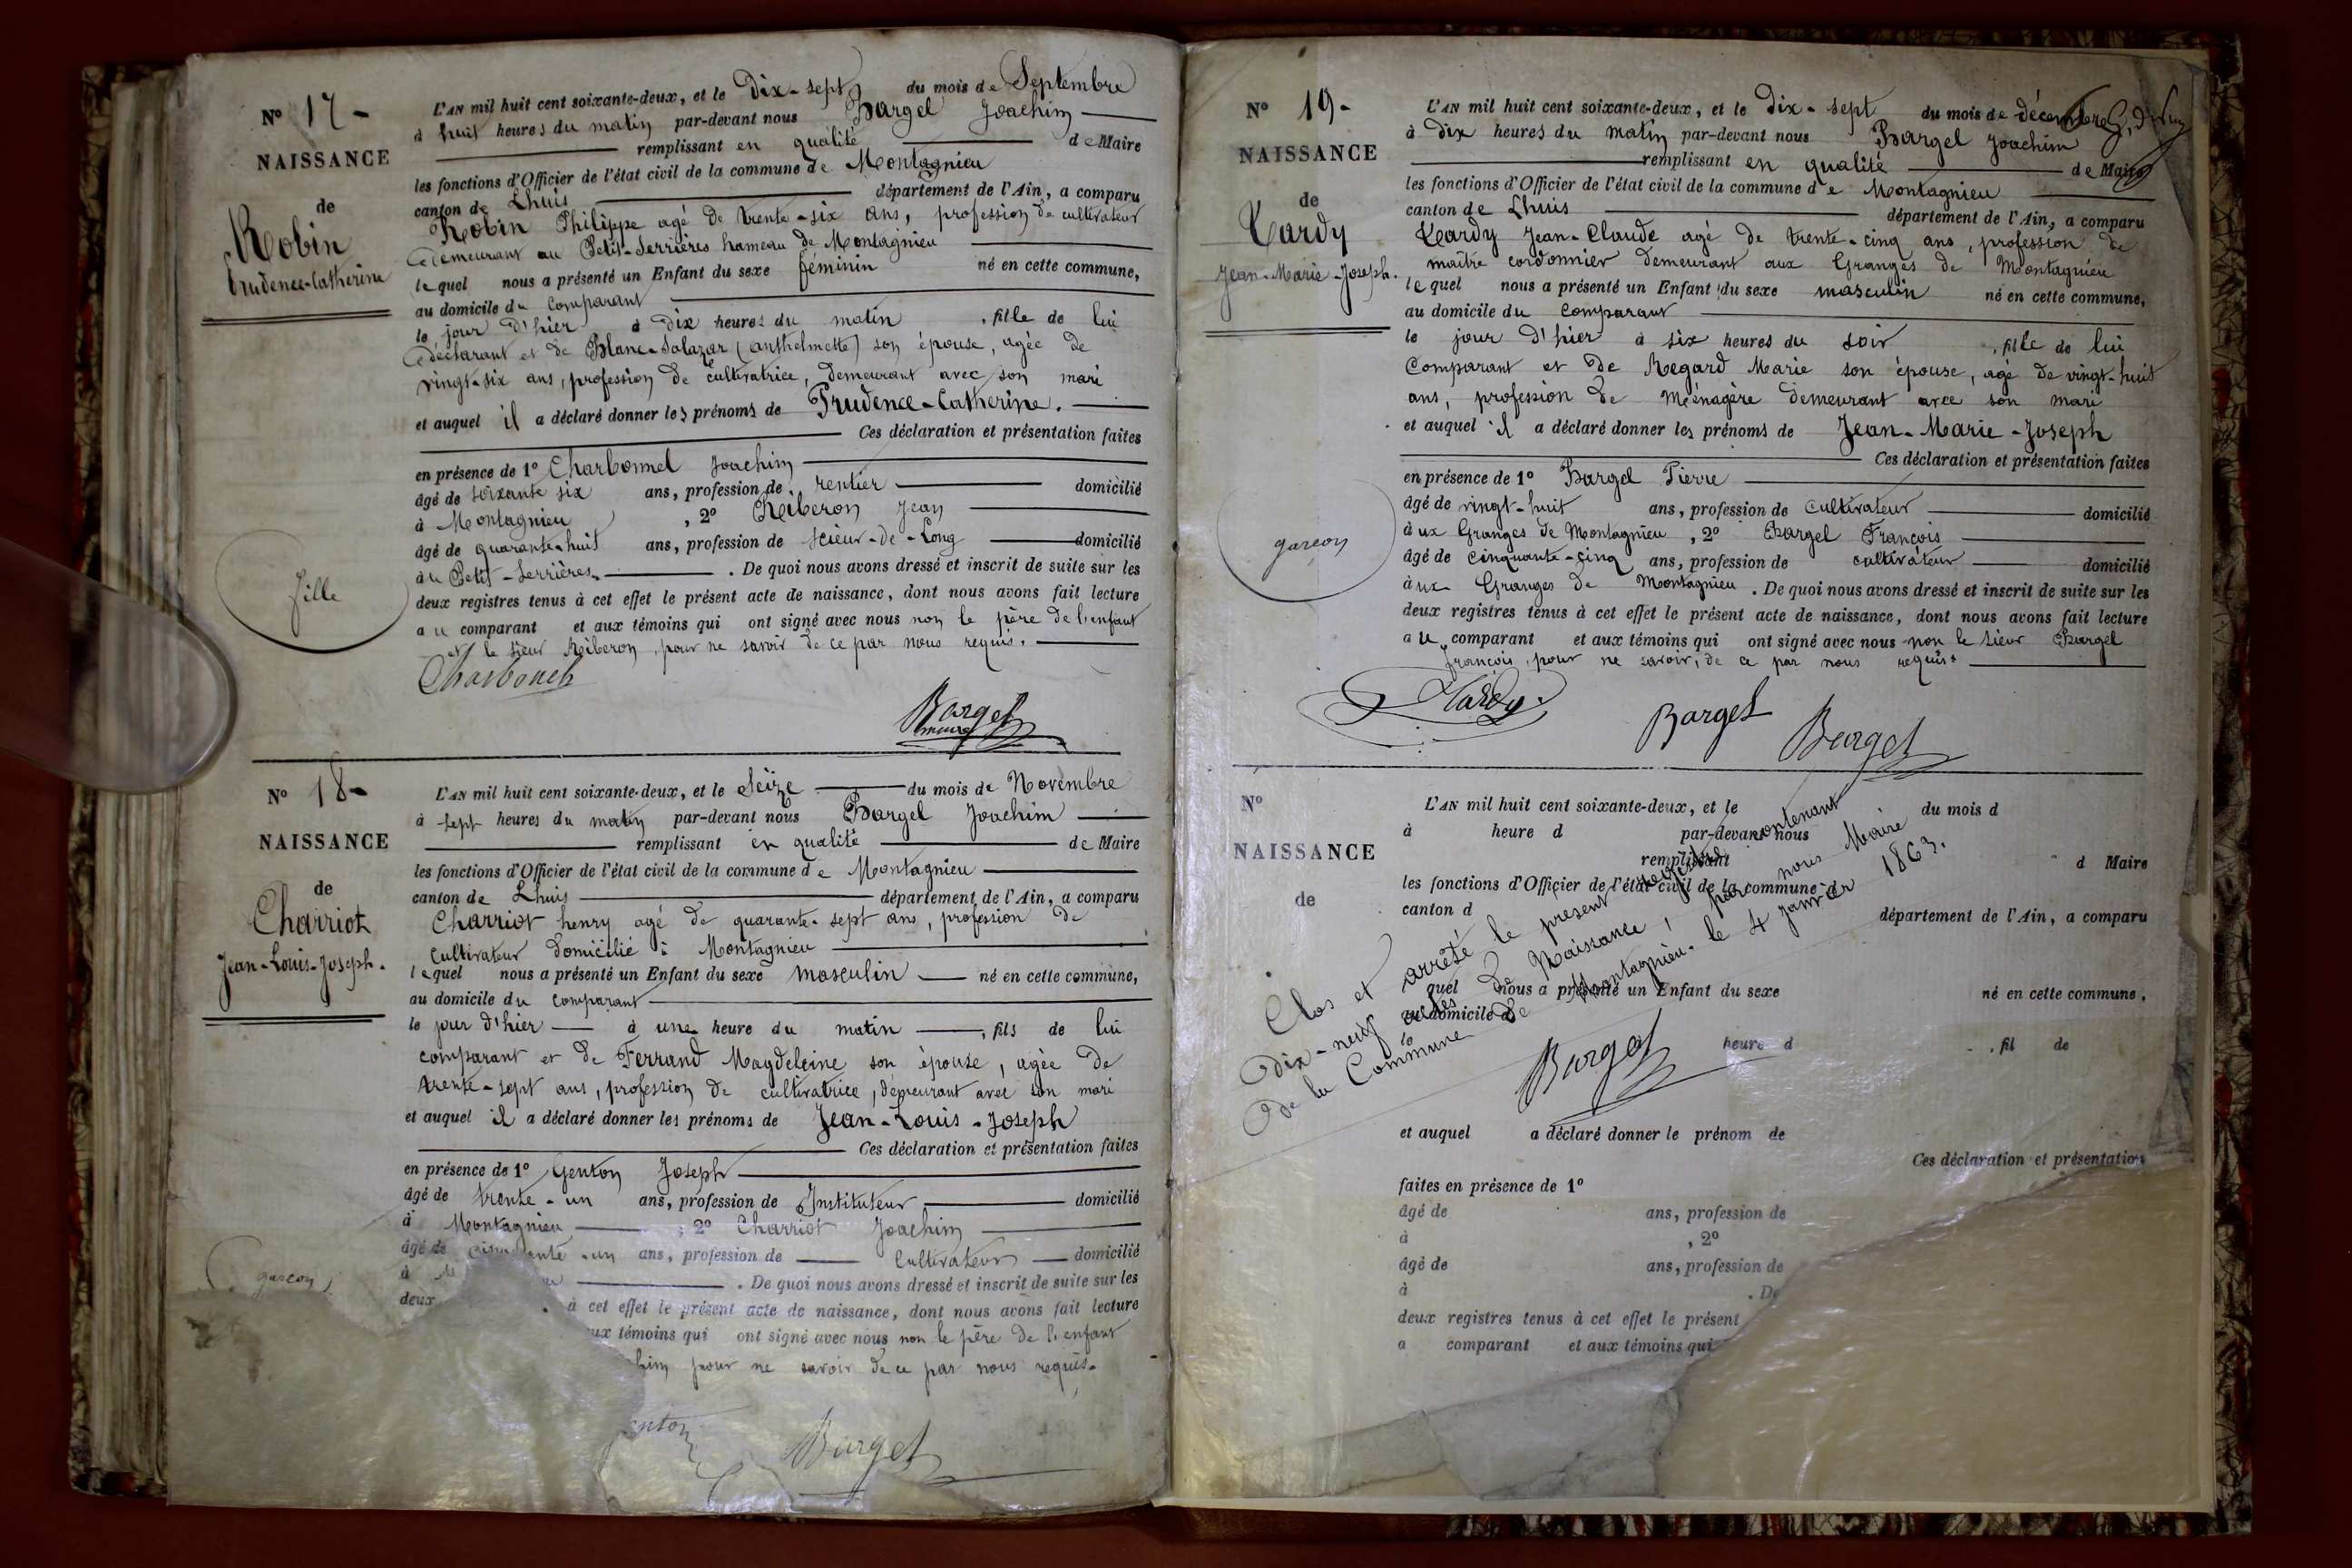 N° 17-
NAISSANCE
de
Robin
Prudence-Catherine
fille
L'AN mil huit cent soixante-deux, et le Dix-sept du mois de Septembre
à huit heures du matin par-devant nous Bargel Joachim
remplissant en qualité de Maire
les fonctions d'Officier de l'état civil de la commune de Montagnieu
canton de Lhuis département de l'Ain, a comparu
Robin Philippe agé de trente-six ans, profession de cultivateur
demeurant au Petit-Serrières hameau de Montagnieu
lequel nous a présenté un Enfant du sexe féminin né en cette commune,
au domicile du comparant
le jour d'hier à dix heures du matin , fille de lui
déclarant et de Blanc-Salazar (anthelmette) son épouse, agée de
vingt-six ans, profession de cultivatrice, demeurant avec son mari
et auquel il a déclaré donner les prénoms de Prudence-Catherine.
Ces déclaration et présentation faites
en présence de 1° Charbonnel Joachim
âgé de soixante six ans, profession de rentier domicilié
à Montagnieu , 2° Reiberon Jean
âgé de quarante-huit ans, profession de scieur-de-Long domicilié
au Petit-Serrières. . De quoi nous avons dressé et inscrit de suite sur les
deux registres tenus à cet effet le présent acte de naissance, dont nous avons fait lecture
au comparant et aux témoins qui ont signé avec nous non le père de l'enfant
et le sieur Reiberon, pour ne savoir de ce par nous requis.
Bargel
maire
N° 18-
NAISSANCE
de
Charriot
Jean-Louis-Joseph.
garcon
L'AN mil huit cent soixante-deux, et le Seize du mois de Novembre
à sept heures du matin par-devant nous Bargel Joachim
remplissant en qualité de Maire
les fonctions d'Officier de l'état civil de la commune de Montagnieu
canton de Lhuis département de l'Ain, a comparu
Charriot henry agé de quarante-sept ans, profession de
cultivateur domicilié à Montagnieu
lequel nous a présenté un Enfant du sexe masculin né en cette commune,
au domicile du comparant
le jour d'hier à une heure du matin , fils de lui
comparant et de Ferrand Magdeleine son épouse, agée de
trente-sept ans, profession de cultivatrice, demeurant avec son mari
et auquel il a déclaré donner les prénoms de Jean-Louis-Joseph
Ces déclaration et présentation faites
en présence de 1° Genton Joseph
âgé de trente-un ans, profession de Instituteur domicilié
à Montagnieu , 2° Charriot Joachim
âgé de cinquante-un ans, profession de Cultivateur domicilié
à . De quoi nous avons dressé et inscrit de suite sur les
deux à cet effet le présent acte de naissance, dont nous avons fait lecture
témoins qui ont signé avec nous non le père de l'enfant
pour ne savoir de ce par nous requis.
Bargel
N° 19-
NAISSANCE
de
Tardy
Jean-Marie-Joseph.
garçon
L'AN mil huit cent soixante-deux, et le dix-sept du mois de décembre
à dix heures du matin par-devant nous Bargel Joachim
remplissant en qualité de Maire
les fonctions d'Officier de l'état civil de la commune de Montagnieu
canton de Lhuis département de l'Ain, a comparu
Tardy Jean-Claude agé de trente-cinq ans, profession de
maître cordonnier demeurant aux Granges de Montagnieu
lequel nous a présenté un Enfant du sexe masculin né en cette commune,
au domicile du comparant
le jour d'hier à six heures du soir , fille de lui
Comparant et de Regard Marie son épouse, agé de vingt-huit
ans, profession de Ménagère demeurant avec son mari
et auquel il a déclaré donner les prénoms de Jean-Marie-Joseph
Ces déclaration et présentation faites
en présence de 1° Bargel Pierre
âgé de vingt-huit ans, profession de cultivateur domicilié
aux Granges de Montagnieu , 2° Bargel François
âgé de cinquante-cinq ans, profession de cultivateur domicilié
aux Granges de Montagnieu . De quoi nous avons dressé et inscrit de suite sur les
deux registres tenus à cet effet le présent acte de naissance, dont nous avons fait lecture
au comparant et aux témoins qui ont signé avec nous non le sieur Bargel
françois, pour ne savoir, de ce par nous requis.
Tardy. Bargel Bargel
N°
NAISSANCE
de
L'AN mil huit cent soixante-deux, et le du mois d
à heure d par-devant nous
remplissant d Maire
les fonctions d'Officier de l'état civil de la commune d
canton d département de l'Ain, a comparu
quel nous a présenté un Enfant du sexe né en cette commune,
au domicile d
le heure d , fil de
et auquel a déclaré donner le prénom de
Ces déclaration et présentation
faites en présence de 1°
âgé de ans, profession de
à , 2°
âgé de ans, profession de
à . De
deux registres tenus à cet effet le présent
a comparant et aux témoins qui
Clos et arrêté le présent registre contenant
Dix-neuf actes de Naissance, par nous Maire
de la Commune de Montagnieu. le 4 Janvier 1863.
Bargel